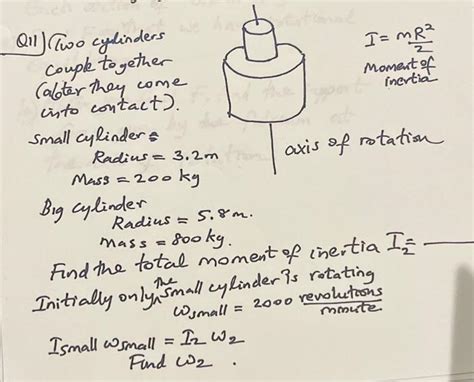 Q11) Two cylinders
couple together
(after they come
into contact).
I = mR²/2
Moment of
inertia
axis of rotation
Small cylinder:
Radius = 3.2m
Mass = 200 kg
Big cylinder
Radius = 5.8m.
mass = 800kg.
Find the total moment of inertia I₂= ___
Initially only the small cylinder is rotating
ωsmall = 2000 revolutions/minute
Ismall ωsmall = I₂ ω₂
Find ω₂ .